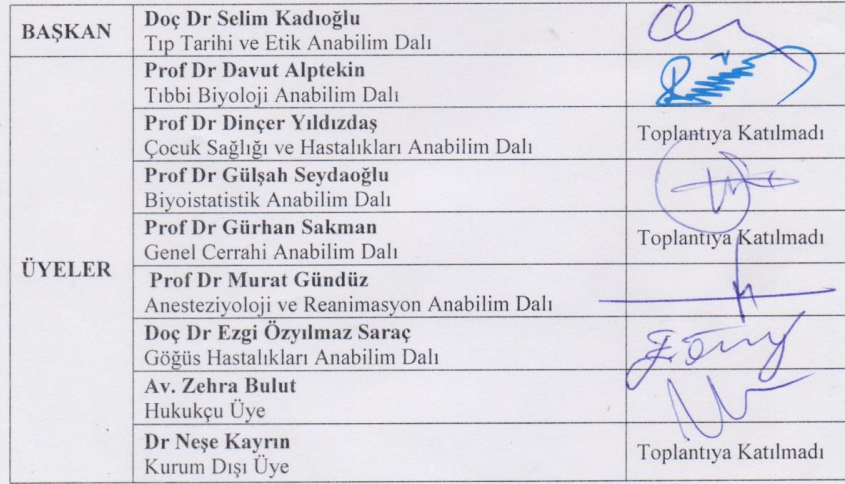 BAŞKAN
Doç Dr Selim Kadıoğlu
Tıp Tarihi ve Etik Anabilim Dalı
ÜYELER
Prof Dr Davut Alptekin
Tıbbi Biyoloji Anabilim Dalı
Prof Dr Dinçer Yıldızdaş
Çocuk Sağlığı ve Hastalıkları Anabilim Dalı
Toplantıya Katılmadı
Prof Dr Gülşah Seydaoğlu
Biyoistatistik Anabilim Dalı
Prof Dr Gürhan Sakman
Genel Cerrahi Anabilim Dalı
Toplantıya Katılmadı
Prof Dr Murat Gündüz
Anesteziyoloji ve Reanimasyon Anabilim Dalı
Doç Dr Ezgi Özyılmaz Saraç
Göğüs Hastalıkları Anabilim Dalı
Av. Zehra Bulut
Hukukçu Üye
Dr Neşe Kayrın
Kurum Dışı Üye
Toplantıya Katılmadı